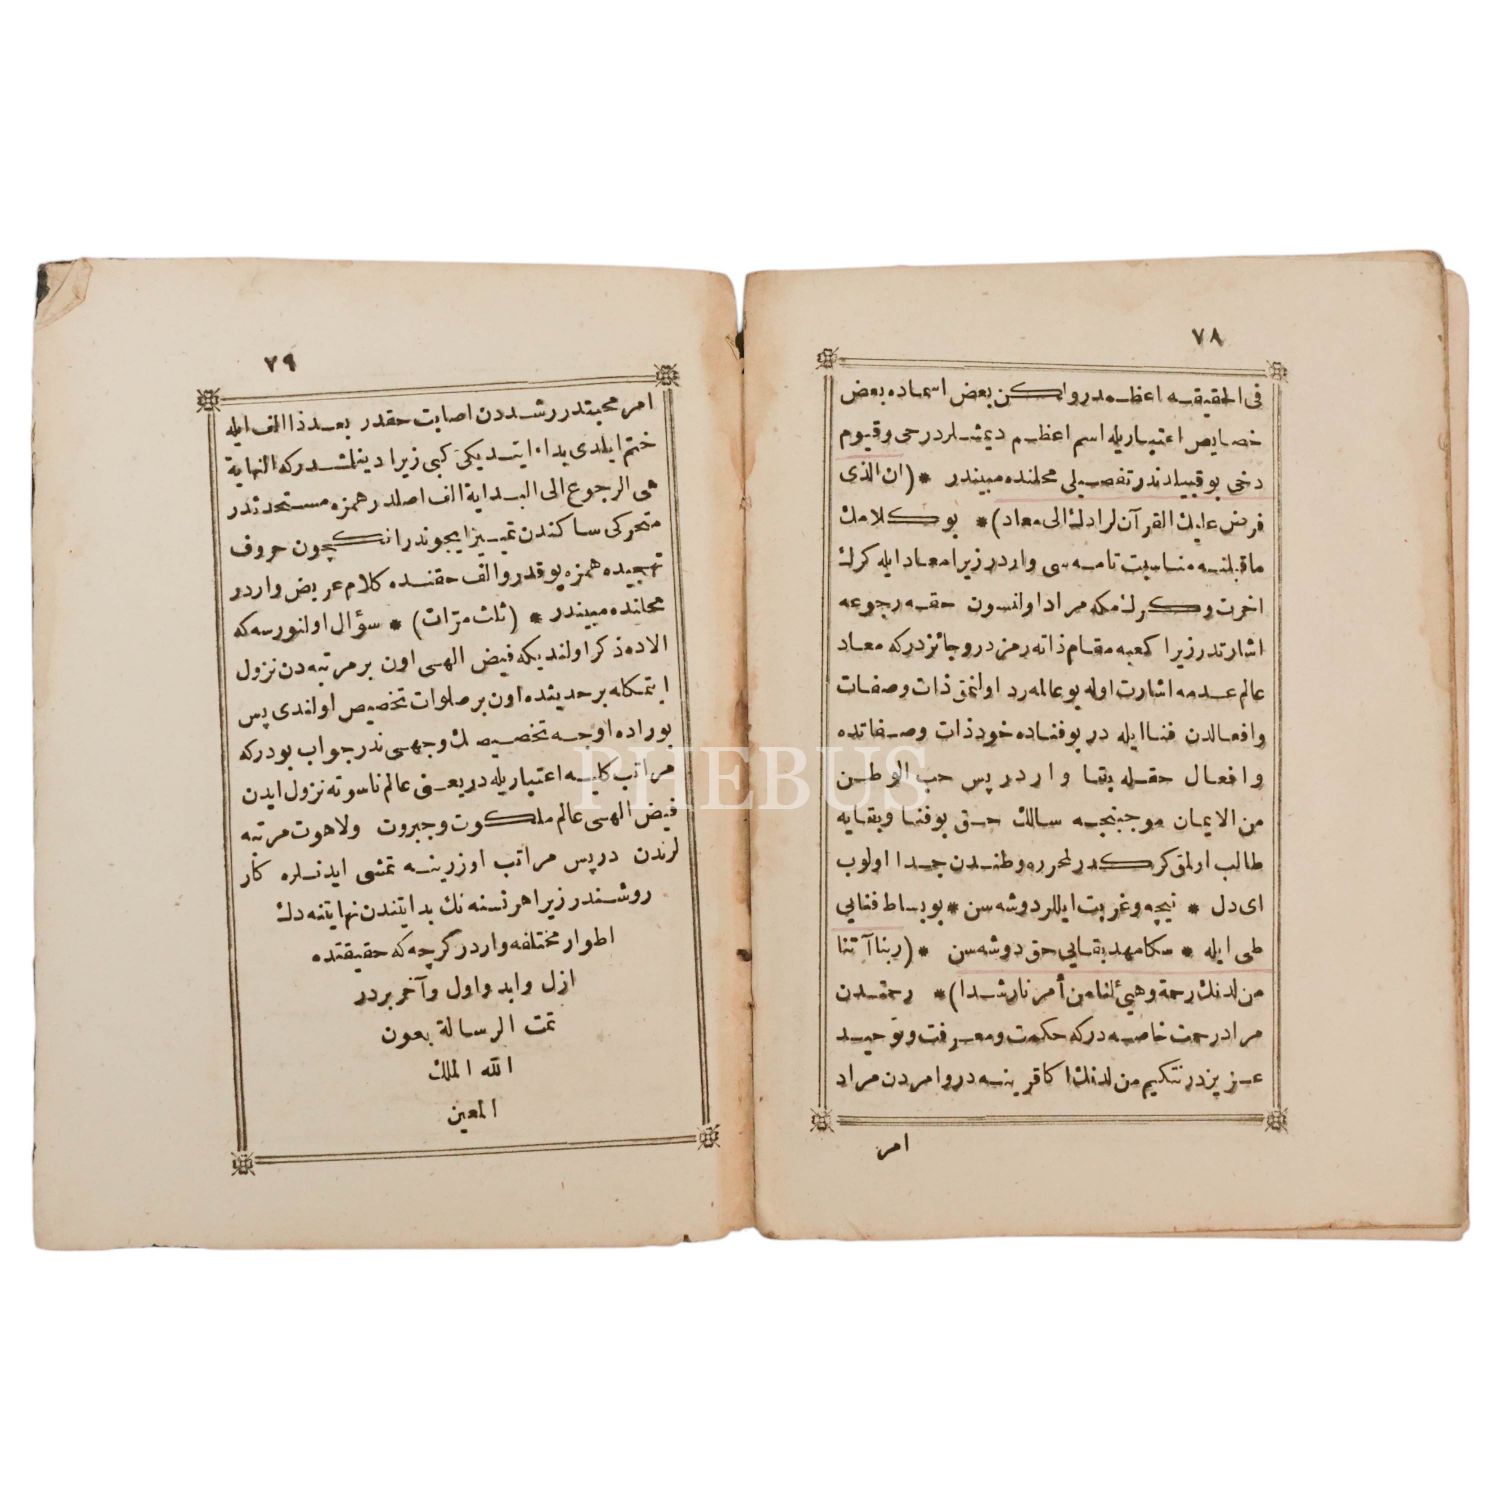 ٧٨
فی الحقیقه اعظمدر ولکن بعض اسماده بعض
خصایص اعتباریله اسم اعظم دیمشلردر حی وقیوم
دخی بو قبیلدندر تفصیلی محلنده مبیندر * (ان الذی
فرض علیك القرآن لرادك الی معاد) * بو کلامك
ماقبلنه مناسبت تامه سی واردر زیرا معاد ایله کرك
اخرت وکرك مکه مراد اولنسون حقه رجوعه
اشارتدر زیرا کعبه مقام ذاته رمزدر وجائزدرکه معاد
عالم عدمه اشارت اوله بو عالمه رد اولنمق ذات وصفات
وافعالدن فنا ایله در بو فناده خود ذات وصفاتده
وافعال حقله بقا واردر پس حب الوطن
من الایمان موجبنجه سالك حق بو فنا وبقایه
طالب اولمق کرکدر لمحرره وطندن جدا اولوب
ای دل * نیچه وغربت ایللر دوشه سن * بو بساط فنایی
طی ایله * سکا مهد بقایی حق دوشه سن * (ربنا آتنا
من لدنك رحمة وهیئ لنا من أمرنا رشدا) * رحمتدن
مراد رحمت خاصه درکه حکمت ومعرفت وتوحید
عزیزدر تنکیم من لدنك اکا قرینه در وامردن مراد
امر
PHEBUS
٧٩
امر محبتدر رشددن اصابت حقدر بعد ذا الف ایله
ختم ایلدی بداء ایتدیکی کبی زیرا دینلمشدرکه النهایة
هی الرجوع الی البدایة الف اصلدر همزه مستحدثدر
متحرکی ساکندن تمییز ایچوندر انکچون حروف
تهجیده همزه یوقدر والف حقنده کلام عریض واردر
محلنده مبیندر * (ثلث مرّات) * سؤال اولنورسه که
الاده ذکر اولندیکه فیض الهی اون بر مرتبه دن نزول
ایتمکله بر حدیثده اون بر صلوات تخصیص اولندی پس
بوراده اوچه تخصیصك وجهی ندر جواب بودرکه
مراتب کلیه اعتباریله در یعنی عالم ناسوته نزول ایدن
فیض الهی عالم ملکوت وجبروت ولاهوت مرتبه
لرندن در پس مراتب اوزرینه تمشی ایدنلره کار
روشندر زیرا هر نسنه نك بدایتندن نهایتنه دك
اطوار مختلفه واردر گرچه که حقیقتده
ازل وابد واول وآخر بردر
تمت الرسالة بعون
الله الملك
المعین